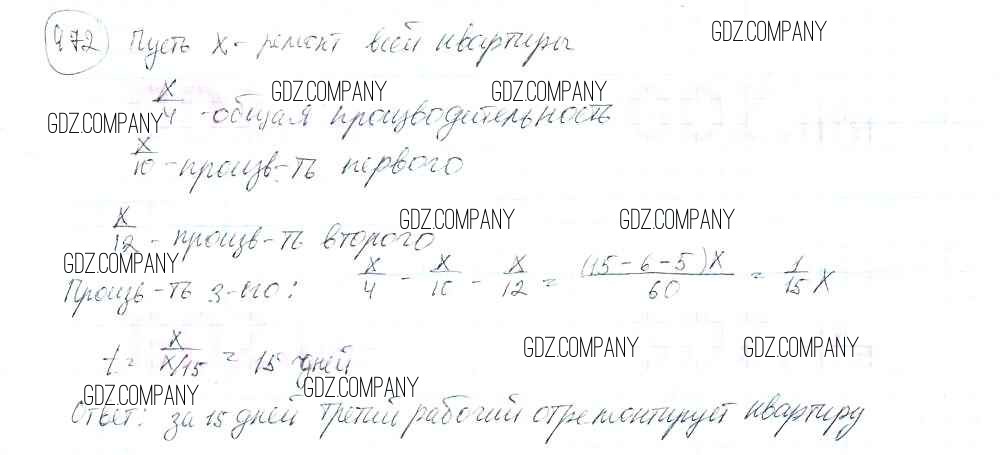 972 Пусть x - ремонт всей квартиры
GDZ.COMPANY
x/4 - общая производительность
GDZ.COMPANY GDZ.COMPANY
GDZ.COMPANY
x/10 - произв-ть первого
x/12 - произв-ть второго
GDZ.COMPANY GDZ.COMPANY
GDZ.COMPANY
Произв-ть 3-его: x/4 - x/10 - x/12 = (15-6-5)x/60 = 1/15 x
t = x/x/15 = 15 дней
GDZ.COMPANY GDZ.COMPANY
GDZ.COMPANY GDZ.COMPANY
Ответ: за 15 дней третий рабочий отремонтирует квартиру